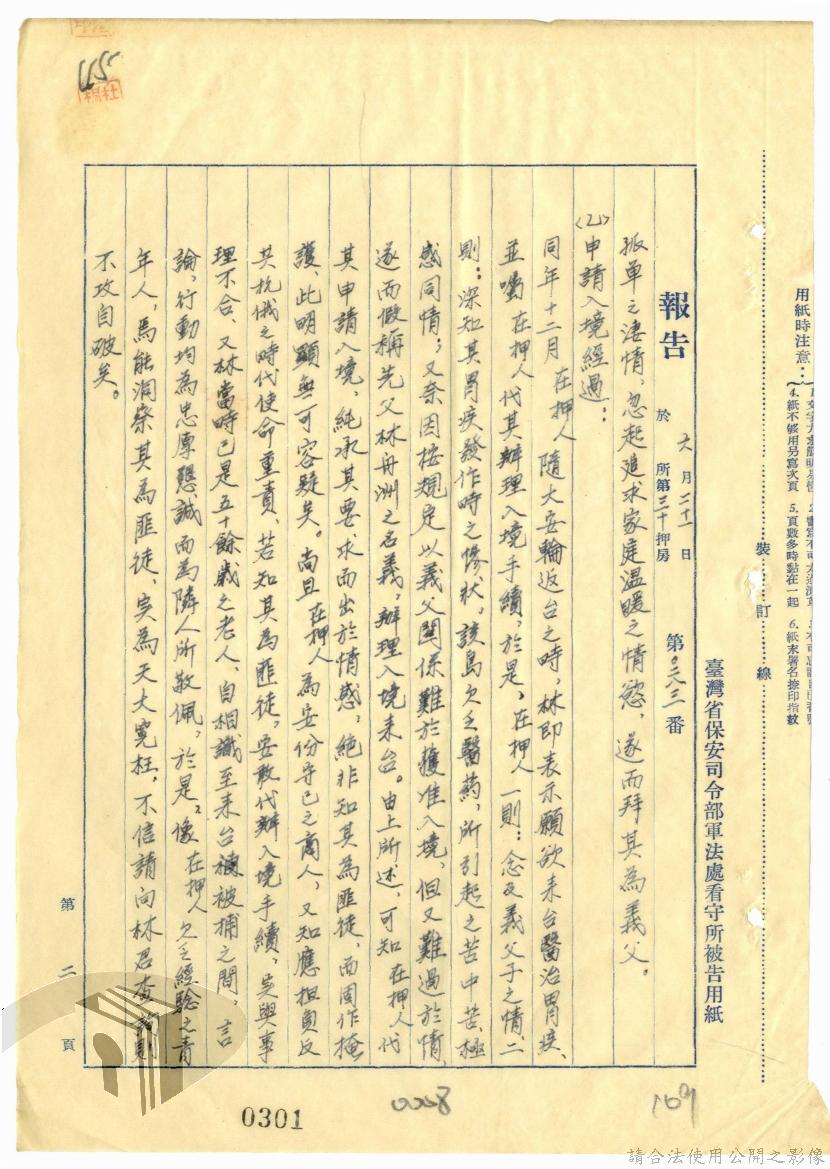 用紙時注意：
4.紙不够用另寫次頁
5.頁數多時黏在一起
6.紙末署名捺印指紋
裝訂線
臺灣省保安司令部軍法處看守所被告用紙
報告
於
六月二十一日
所第三十押房
第〇二八三番
孤單之淒情，忽起追求家庭温暖之情慾，遂而拜其為義父。
〈乙〉申請入境經過：
同年十二月 在押人 隨大安輪返台之時，林即表示願欲来台醫治胃疾、
並囑 在押人 代其辦理入境手續，於是，在押人 一則：念及義父子之情、二
則：深知其胃疾發作時之慘狀，該島欠乏醫葯，所引起之苦中苦、極
感同情；又奈因按規定以義父關係難於獲准入境，但又難過於情、
遂而假稱先父林舟洲之名義，辦理入境来台。由上所述，可知 在押人 代
其申請入境，純承其要求而出於情感，絕非知其為匪徒，而周作掩
護，此明顯無可容疑矣。尚且 在押人 為安份守己之商人，又知應担負反
共抗俄之時代使命重責，若知其為匪徒，安敢代辦入境手續，实與事
理不合、又林當時已是五十餘歲之老人，自相識至来台被捕之間，言
論，行動均為忠厚懇誠而為隣人所敬佩，於是，像 在押人 欠乏經驗之青
年人，焉能洞察其為匪徒，实為天大冤枉，不信請向林君查詢則
不攻自破矣。
第二頁
0301
0228
169
請合法使用公開之影像